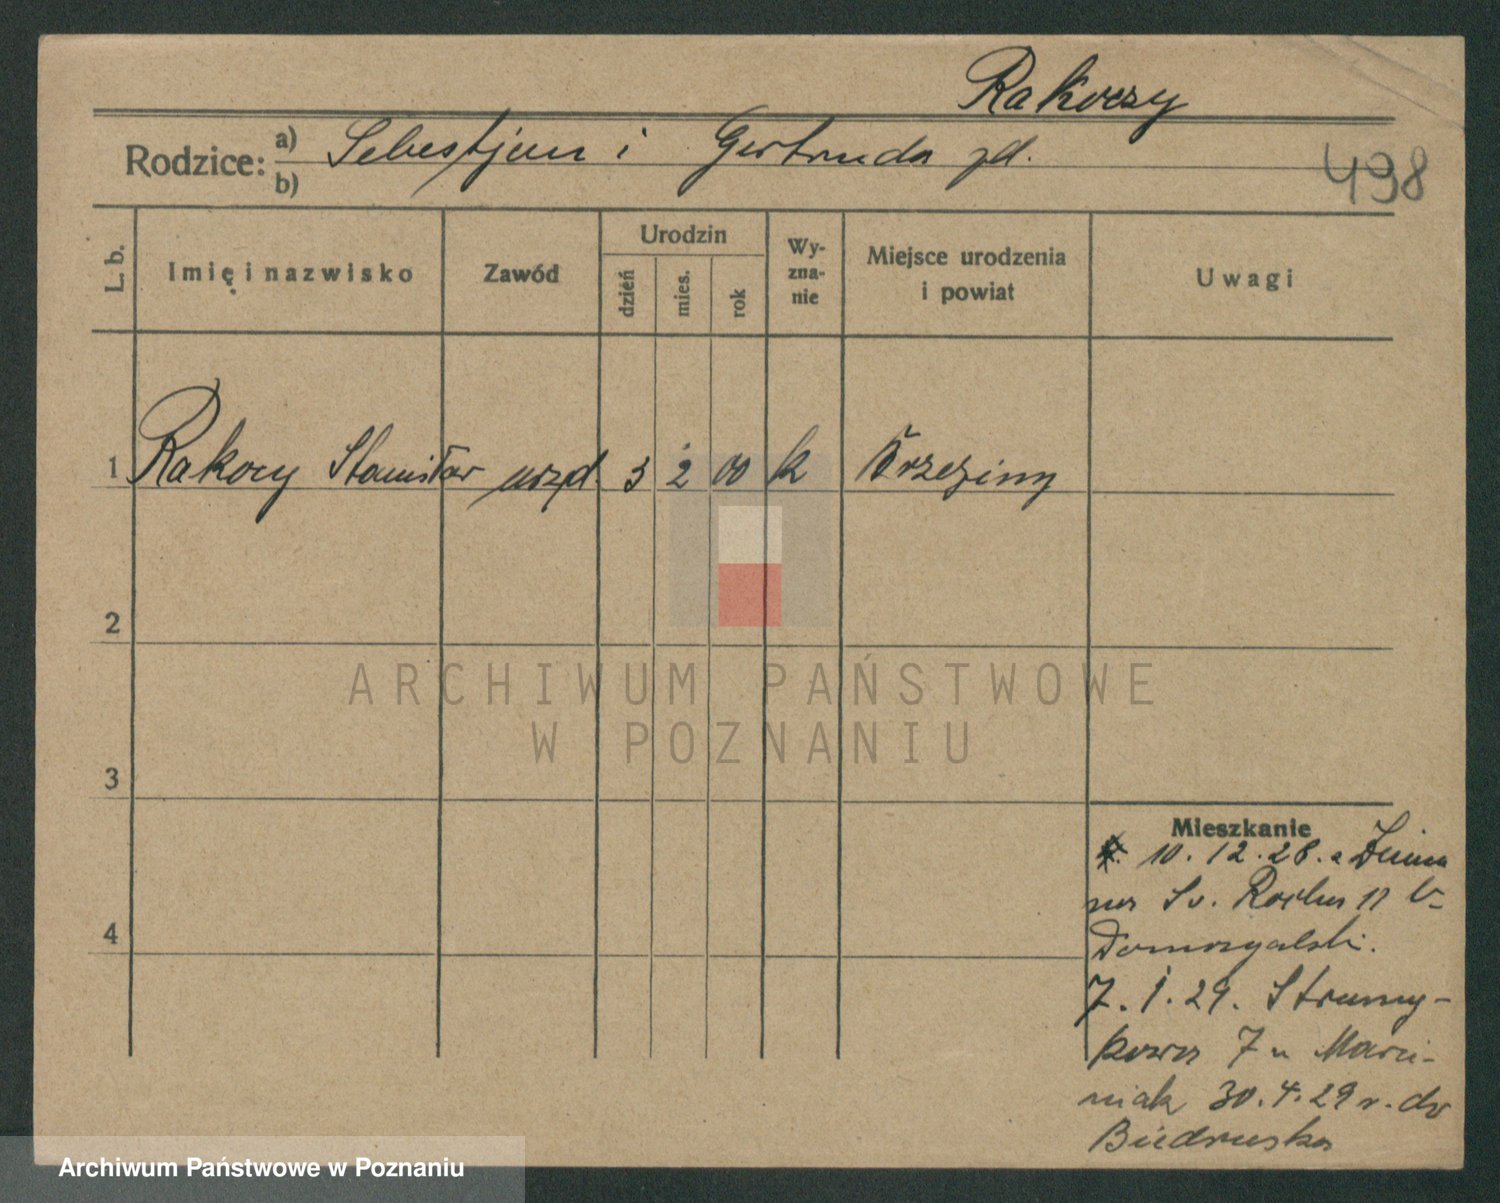 Rakoczy
Rodzice: a) Sebestjan i Gertruda zd.
b)
498
L. b.
Imię i nazwisko
Zawód
Urodzin
dzień
mies.
rok
Wy-
zna-
nie
Miejsce urodzenia
i powiat
Uwagi
1 Rakocy Stanisław urzd. 3 2 00 k Brzeziny
2
3
4
Mieszkanie
10.12.28. z
na Sv. Rocha 11 u
Domagalski.
7.1.29. Strumy-
kowa 7 u Marci-
niak 30.4.29 r. do
Biedruska
ARCHIWUM PAŃSTWOWE
W POZNANIU
Archiwum Państwowe w Poznaniu